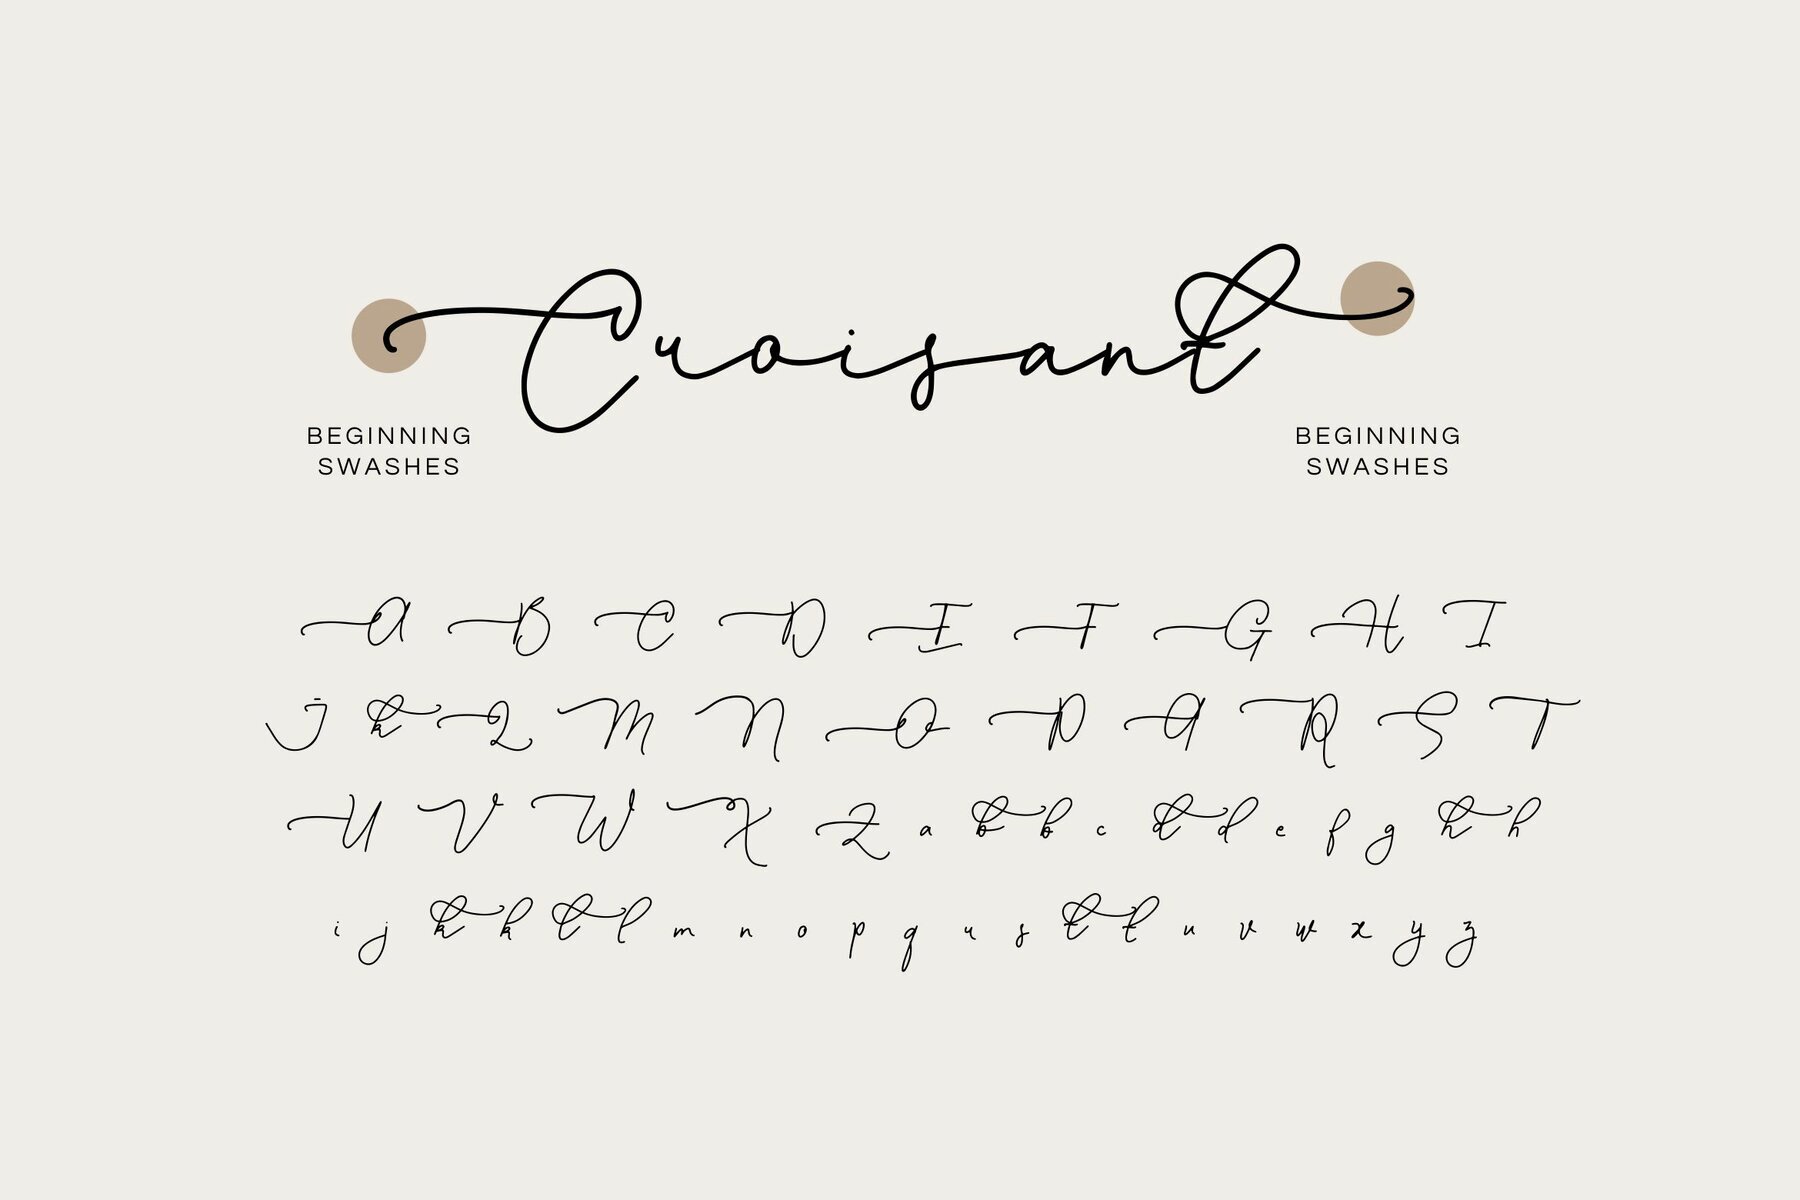 Croisant
BEGINNING SWASHES
BEGINNING SWASHES
A B C D E F G H I
J k L M N O P Q R S T
U V W X Z a b b c d d e f g h h
i j k k l l m n o p q r s t t u v w x y z